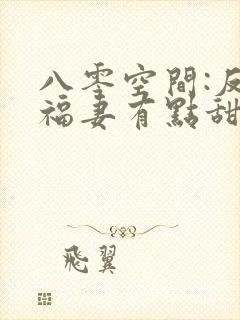 八零空間:反
福妻有點甜
飛翼